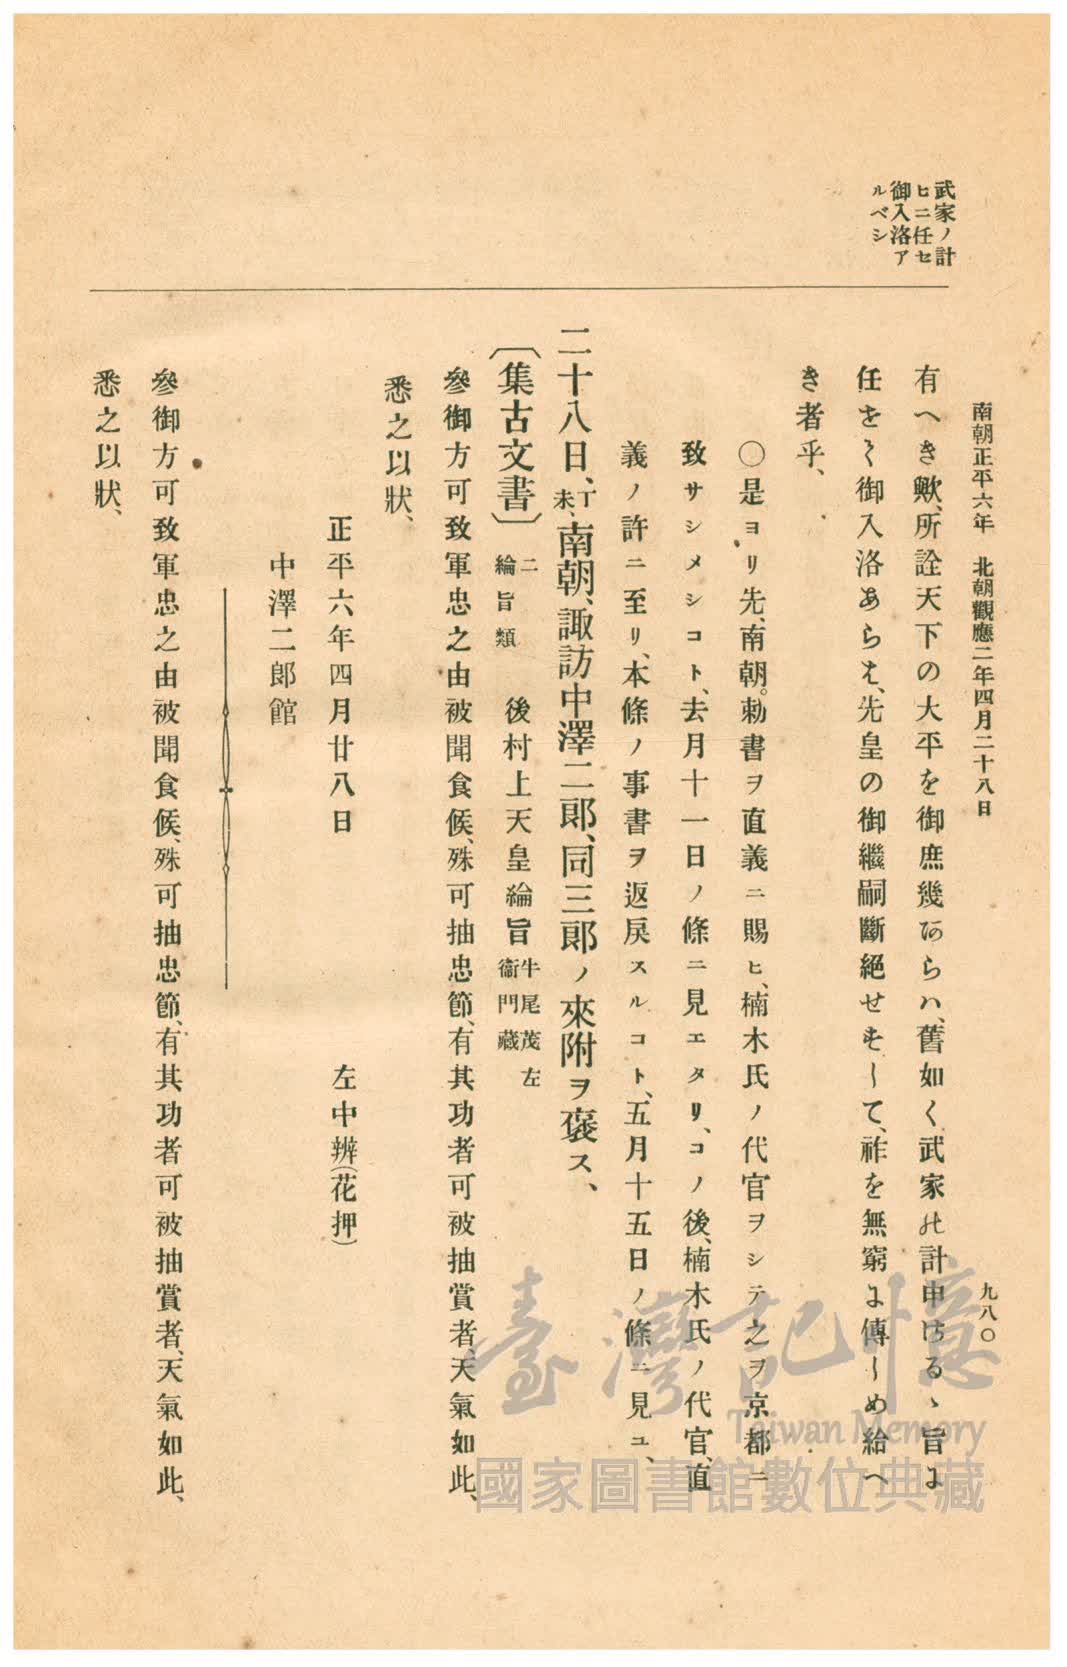 南朝正平六年　北朝觀應二年四月二十八日
九八〇
武家ノ計
ヒニ任セ
御入洛ア
ルベシ
有へき歟、所詮天下の大平を御庶幾あらハ、舊如く武家の計申さるゝ旨に
任せて御入洛あらは、先皇の御繼嗣斷絕せすして、祚を無窮に傳しめ給へ
き者乎、
〇是ヨリ先、南朝。勅書ヲ直義ニ賜ヒ、楠木氏ノ代官ヲシテ之ヲ京都ニ
致サシメシコト、去月十一日ノ條ニ見エタリ、コノ後、楠木氏ノ代官、直
義ノ許ニ至リ、本條ノ事書ヲ返戾スルコト、五月十五日ノ條ニ見ユ、
二十八日、丁未、南朝、諏訪中澤二郎、同三郎ノ來附ヲ褒ス、
〔集古文書〕二綸旨類　後村上天皇綸旨牛尾茂左衞門藏
參御方可致軍忠之由被聞食候、殊可抽忠節、有其功者可被抽賞者、天氣如此、
悉之以狀、
正平六年四月廿八日　左中辨（花押）
中澤二郎館
參御方可致軍忠之由被聞食候、殊可抽忠節、有其功者可被抽賞者、天氣如此、
悉之以狀、
臺灣記憶
Taiwan Memory
國家圖書館數位典藏